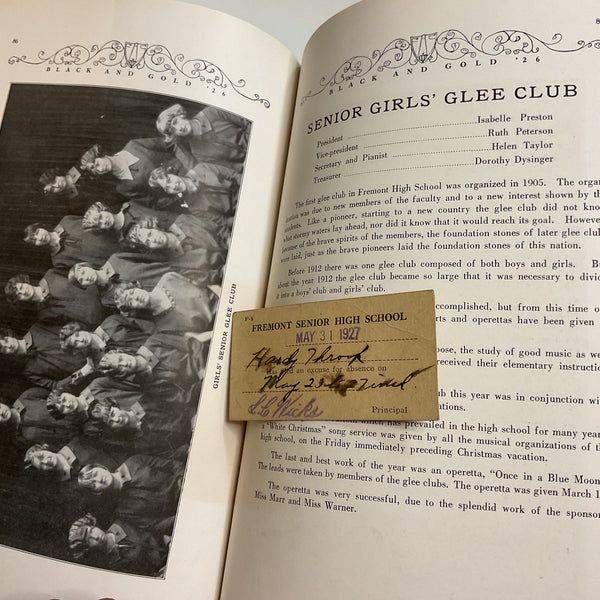 86
BLACK AND GOLD '26
GIRLS' SENIOR GLEE CLUB
8
BLACK AND GOLD '26
SENIOR GIRLS' GLEE CLUB
President Isabelle Preston
Vice-president Ruth Peterson
Secretary and Pianist Helen Taylor
Treasurer Dorothy Dysinger
The first glee club in Fremont High School was organized in 1905. The organ
ization was due to new members of the faculty and to a new interest shown by th
students. Like a pioneer, starting to a new country the glee club did not know
what stormy waters lay ahead, nor did it know that it would reach its goal. Howeve
because of the brave spirits of the members, the foundation stones of later glee club
were laid, just as the brave pioneers laid the foundation stones of this nation.
Before 1912 there was one glee club composed of both boys and girls. Bu
about the year 1912 the glee club became so large that it was necessary to divid
it into a boys' club and girls' club.
ccomplished, but from this time o
rts and operettas have been given
pose, the study of good music as we
received their elementary instruction
club this year was in conjunction wit
ations.
which has prevailed in the high school for many year
a "White Christmas" song service was given by all the musical organizations of th
high school, on the Friday immediately preceding Christmas vacation.
The last and best work of the year was an operetta, "Once in a Blue Moon
The leads were taken by members of the glee clubs. The operetta was given March 1
The operetta was very successful, due to the splendid work of the sponsor
Miss Marr and Miss Warner.
F-8
FREMONT SENIOR HIGH SCHOOL
MAY 31 1927
Hardy Throop
and an excuse for absence on
May 23
Principal